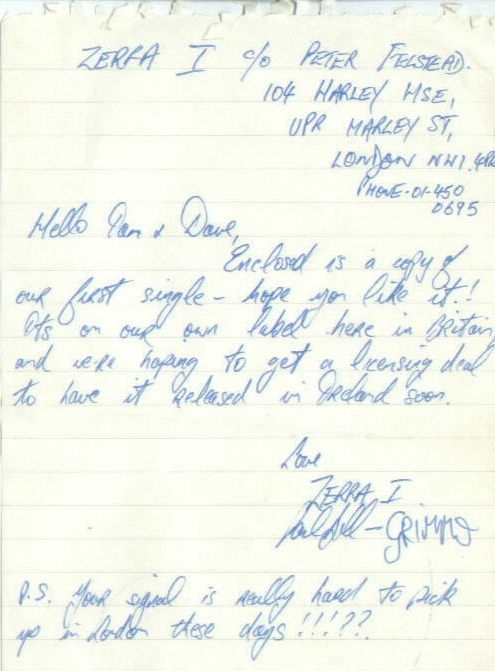 ZERRA I c/o PETER FELSTEAD.
104 HARLEY HSE,
UPR HARLEY ST,
LONDON NW1 4PR
PHONE-01-450
0695
Hello Pam & Dave,
Enclosed is a copy of
our first single - hope you like it!!
Its on our own label here in Britain,
and we're hoping to get a licensing deal
to have it released in Ireland soon.
Love
ZERRA I
- GRIMMO
P.S. Your signal is really hard to pick
up in London these days !!!??.